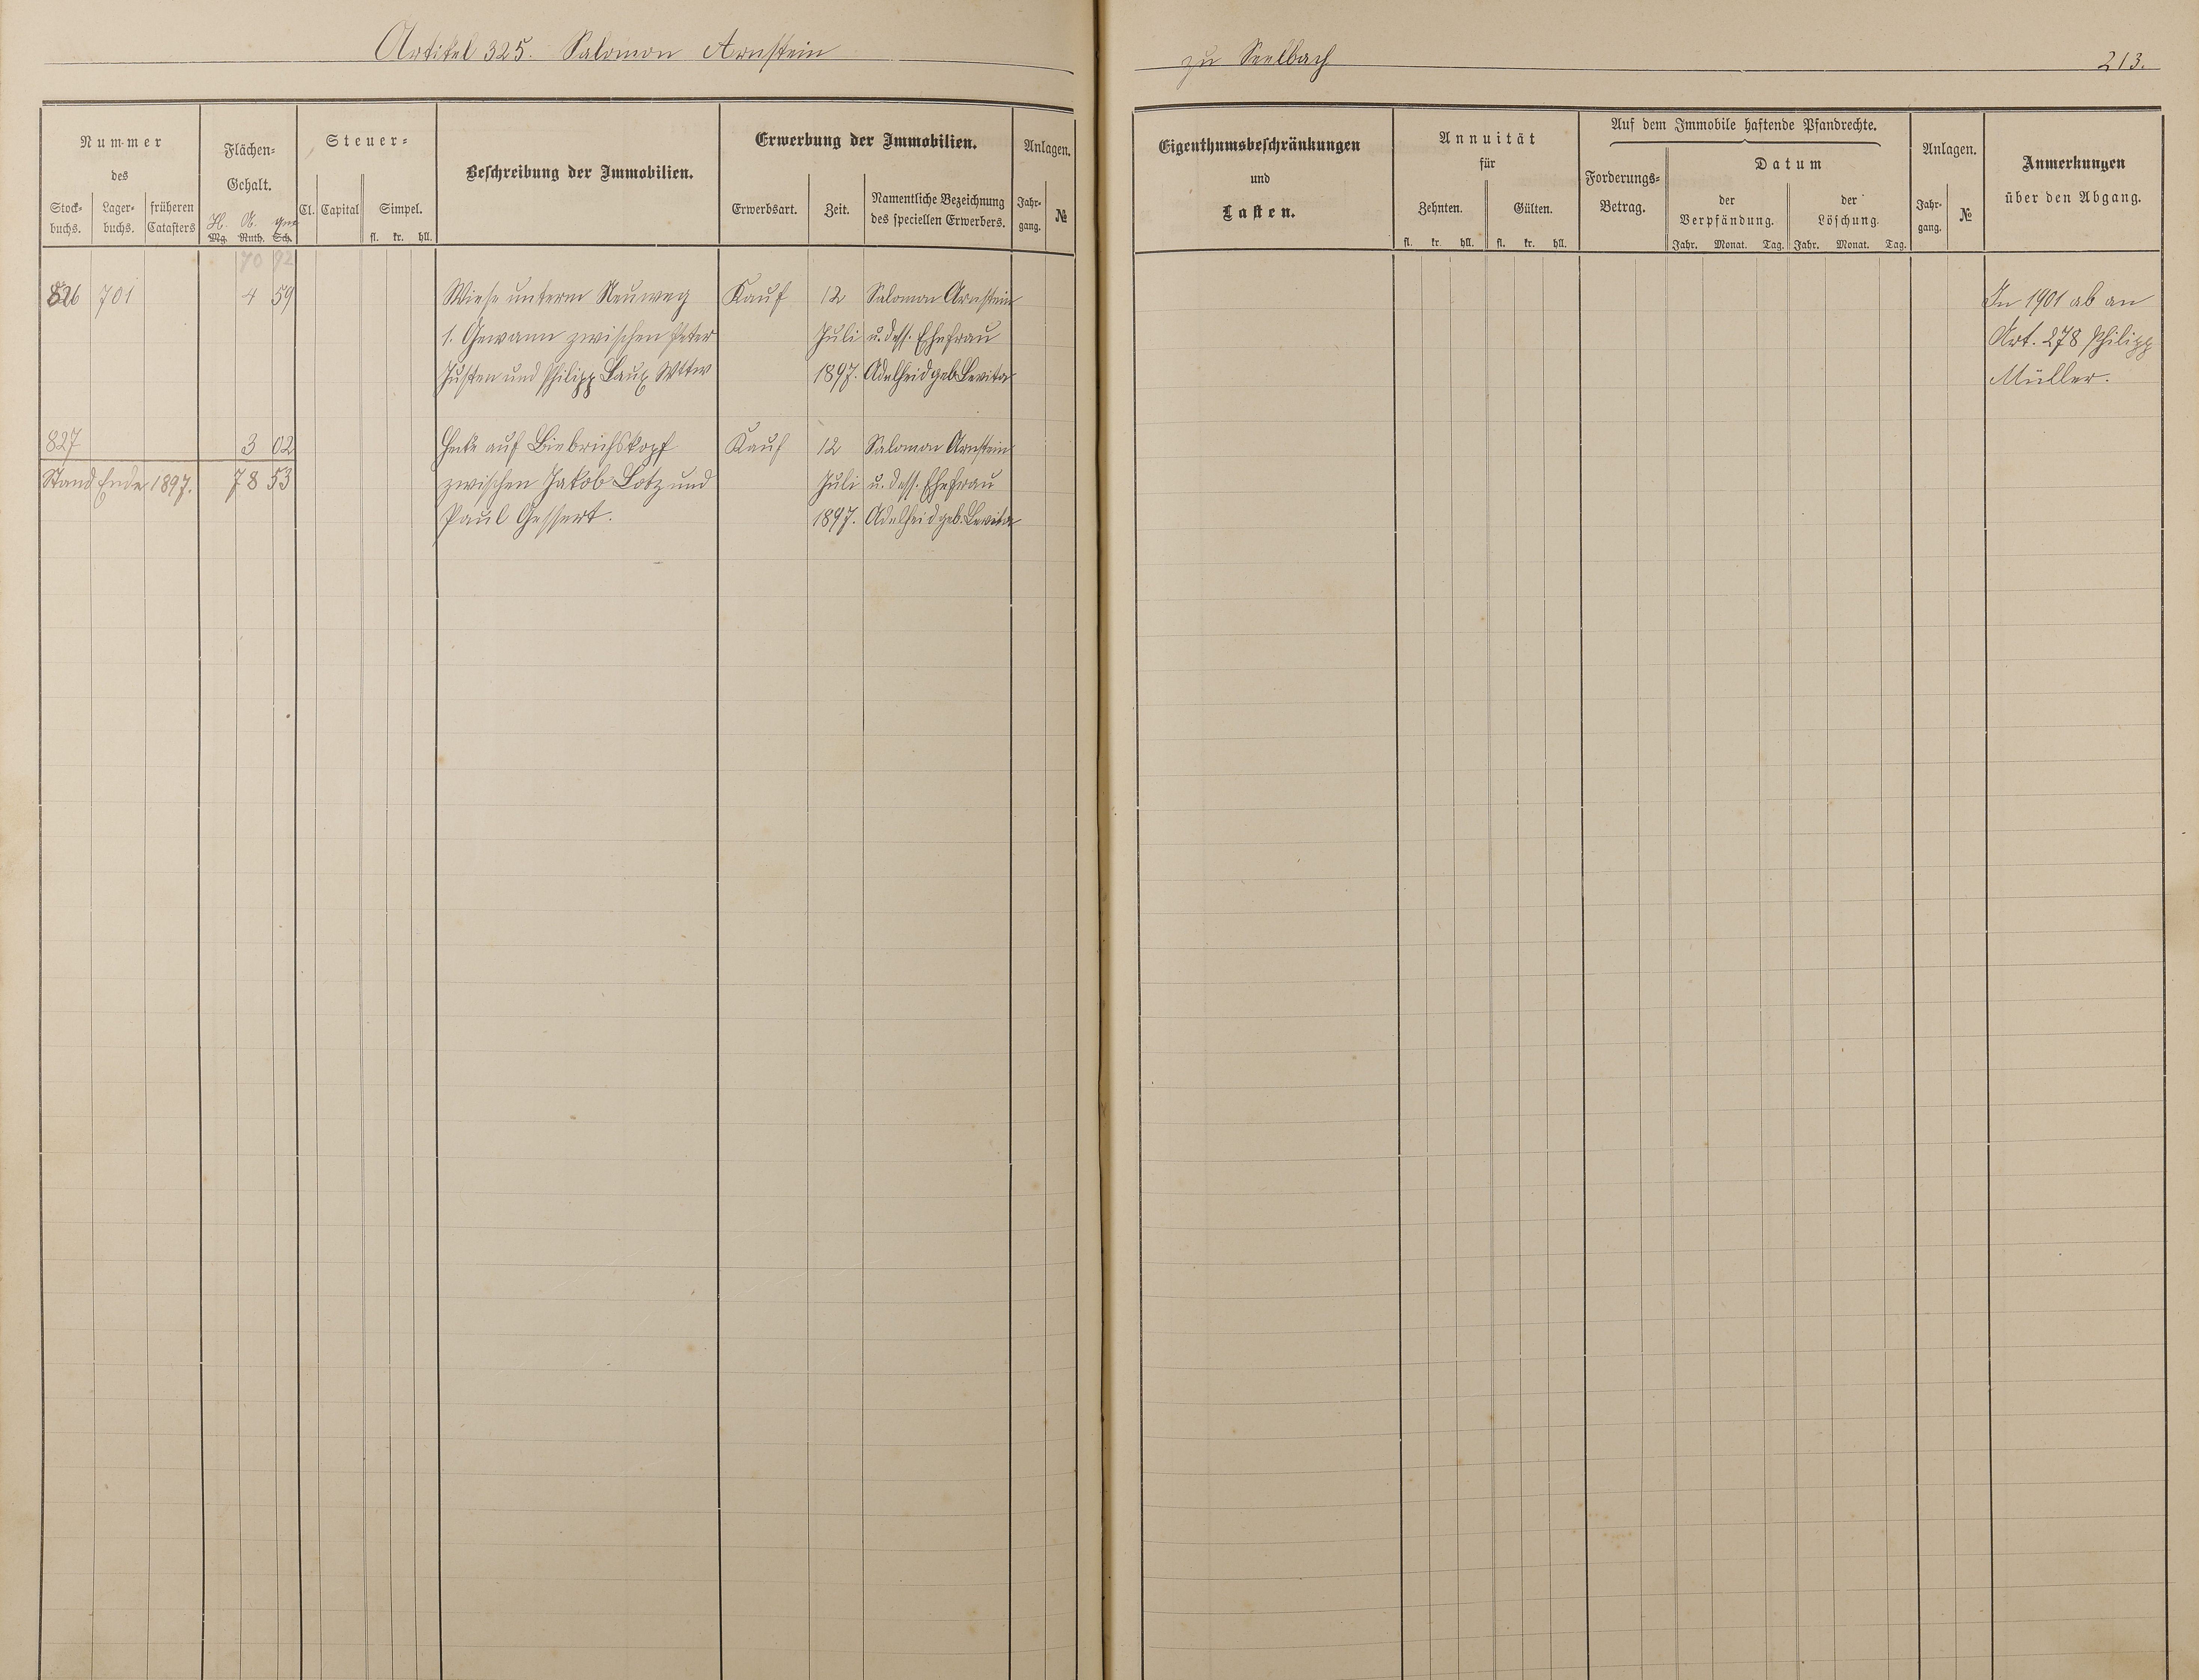 Artikel 325. Salomon Arnstein
zu Seelbach
213.
Nummer
des
Stock-
buchs.
Lager-
buchs.
früheren
Catasters
Flächen-
Gehalt.
H. A. qm
Mg. Ruth. Sch.
Steuer-
Cl. Capital Simpel.
fl. kr. hll.
Beschreibung der Immobilien.
Erwerbung der Immobilien.
Erwerbsart. Zeit.
Namentliche Bezeichnung
des speciellen Erwerbers.
Anlagen.
Jahr-
gang.
№
Eigenthumsbeschränkungen
und
Lasten.
Annuität
für
Zehnten. Gülten.
fl. kr. hll. fl. kr. hll.
Auf dem Immobile haftende Pfandrechte.
Forderungs-
Betrag.
Datum
der
Verpfändung.
der
Löschung.
Jahr. Monat. Tag. Jahr. Monat. Tag.
Anlagen.
Jahr-
gang.
№
Anmerkungen
über den Abgang.
70 92
826 701 4 59 Wiese unterm Neuweg Kauf 12 Salomon Arnstein In 1901 ab an
1. Gewann zwischen Peter Juli u. dess. Ehefrau Art. 278 Philipp
Justen und Philipp Laux Wttw 1897. Adelheid geb. Levita Müller.
827 3 02 Hecke auf Biebrichskopf Kauf 12 Salomon Arnstein
Stand Ende 1897. 78 53 zwischen Jakob Lotz und Juli u. dess. Ehefrau
Paul Gessert. 1897. Adelheid geb. Levita